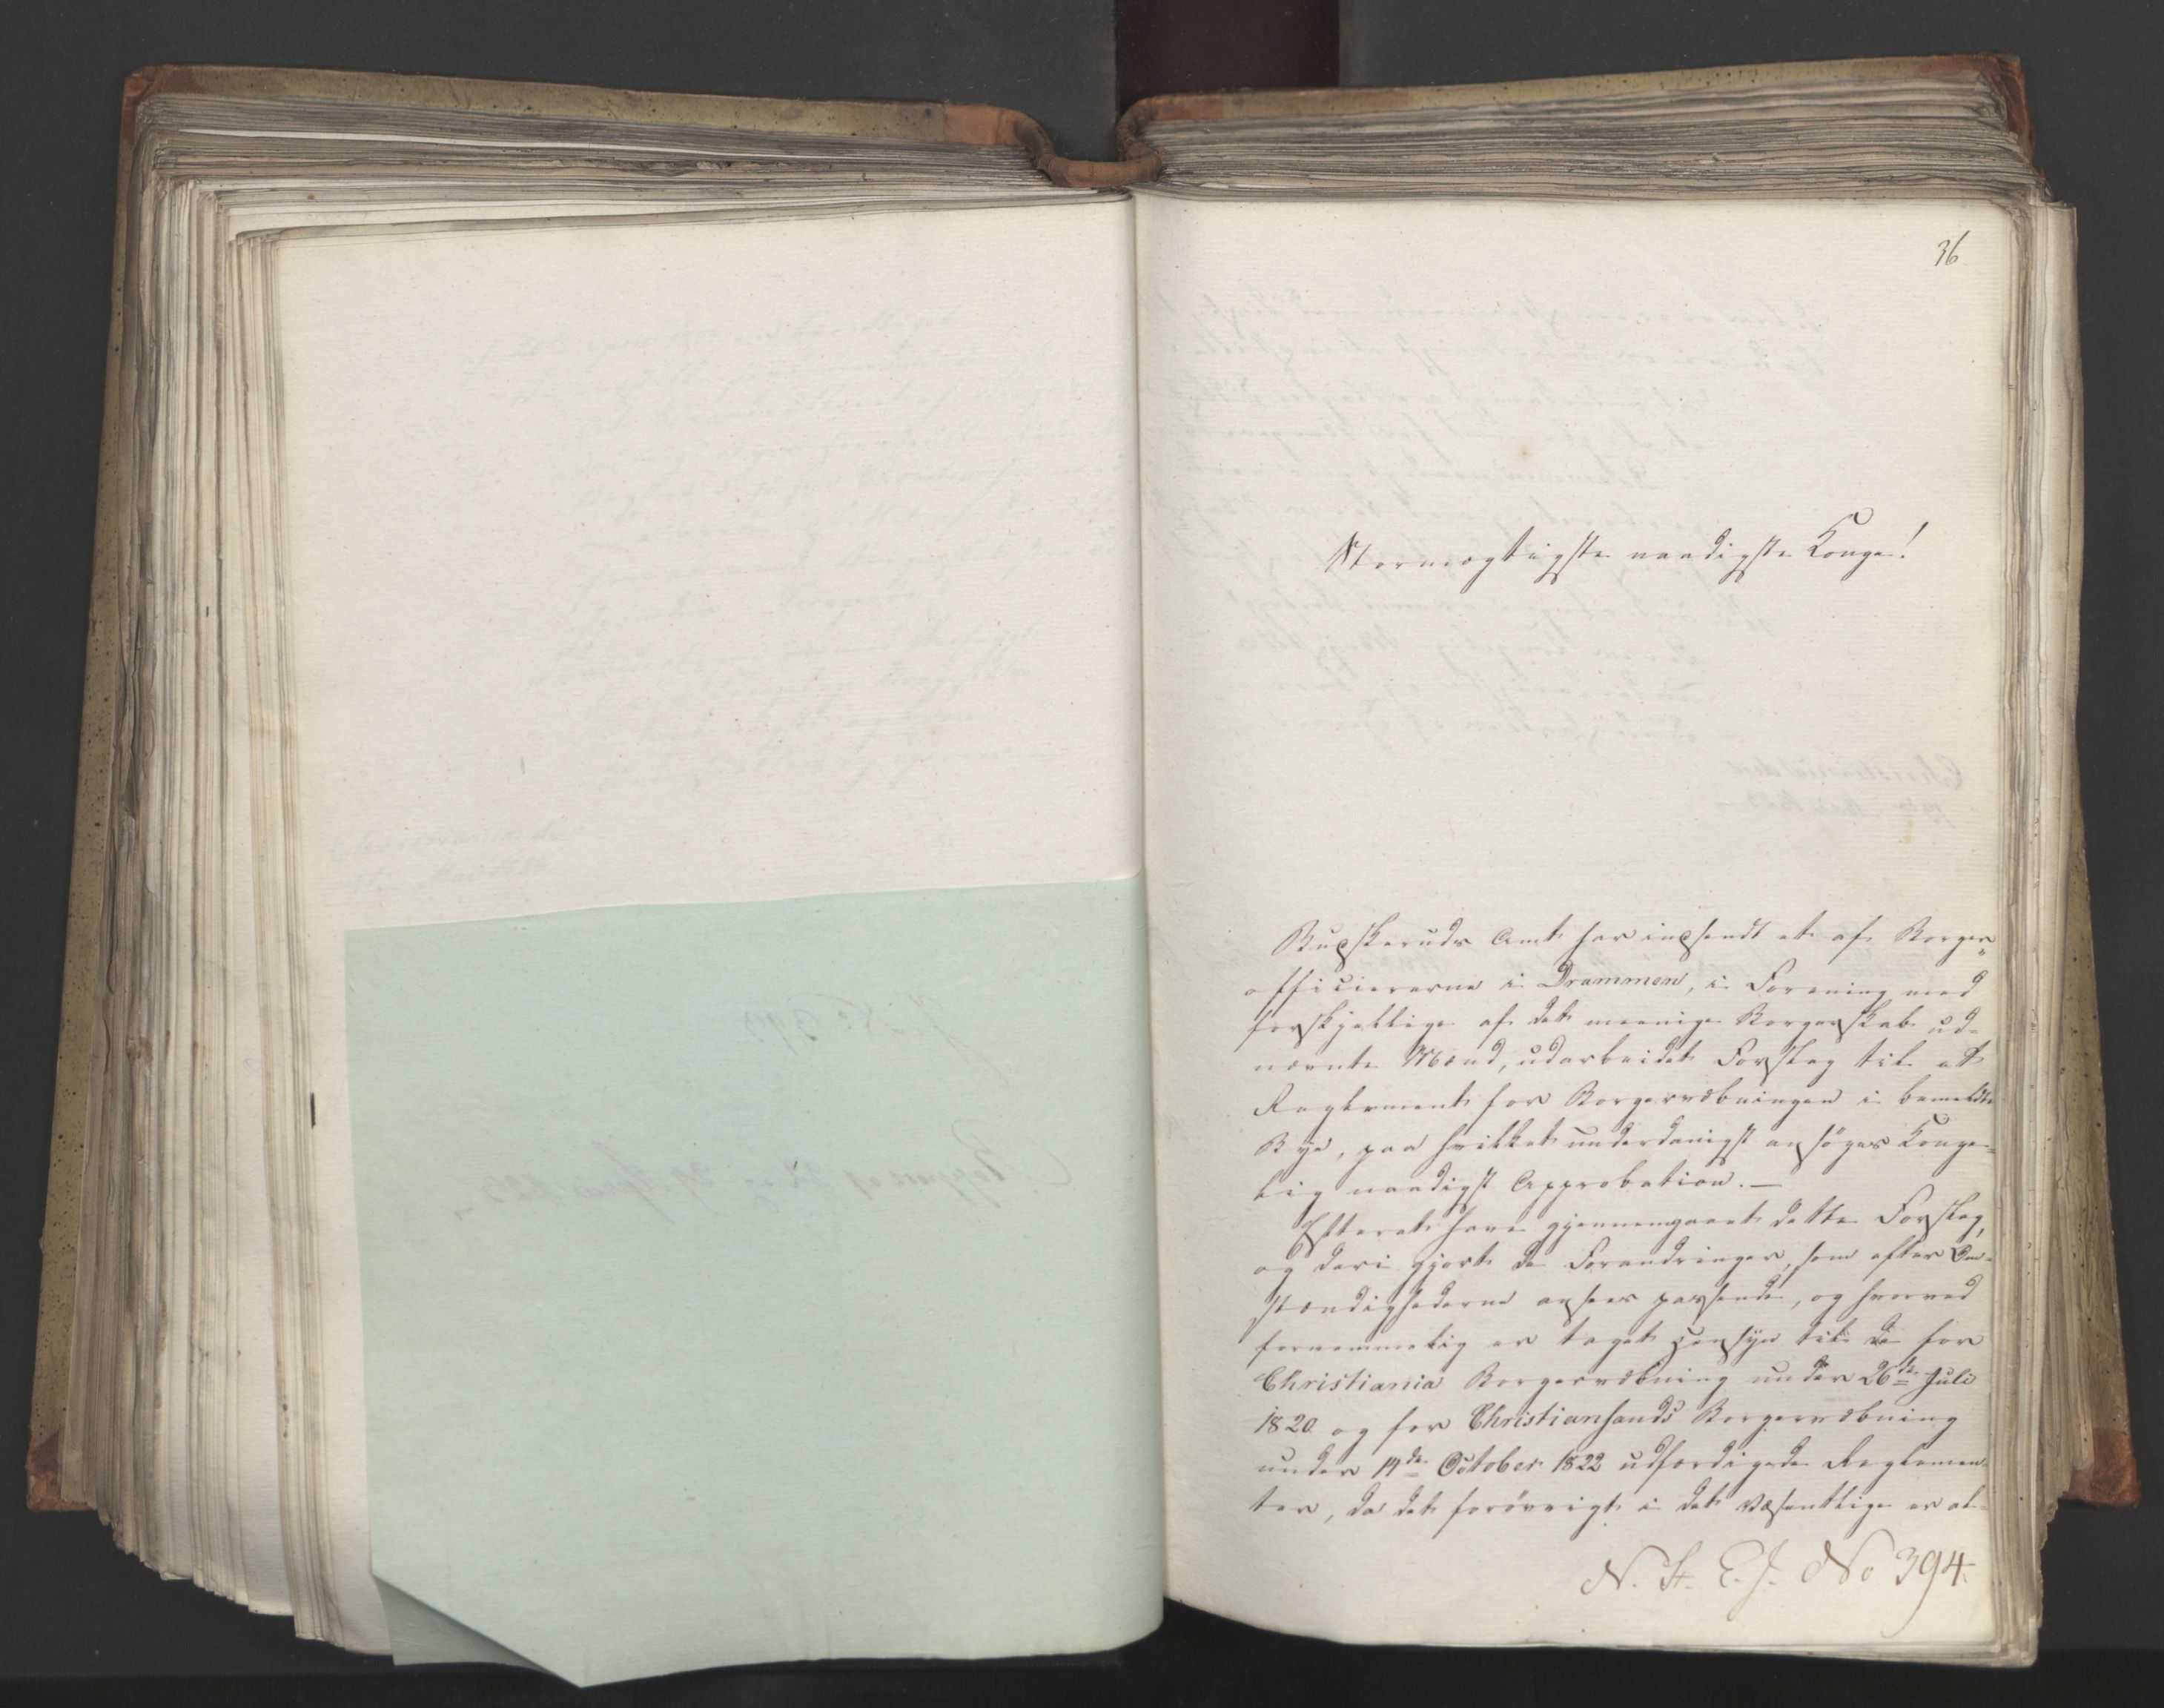 36
Stormægtigste naadigste Konge!
Buskeruds Amt har indsendt et af Borger-
officiererne i Drammen, i Forening med
forskjellige af det meenige Borgerskab ud-
nævnte Mænd, udarbeidet Forslag til et
Reglement for Borgervæbningen i bemeldte
Bye, paa hvilket underdanigst ansøges Konge-
lig naadigst Approbation. —
Efterat have gjennemgaaet dette Forslag,
og deri gjort de Forandringer, som efter Om-
stændighederne ansees passende, og hvorved
fornemmelig er taget Hensyn til de for
Christiania Borgervæbning under 26de Juli
1820 og for Christiansands Borgervæbning
under 14de October 1822 udfærdigede Reglemen-
ter, da det forøvrigt i det Væsentlige er al-
N. St. E. J. No 394.